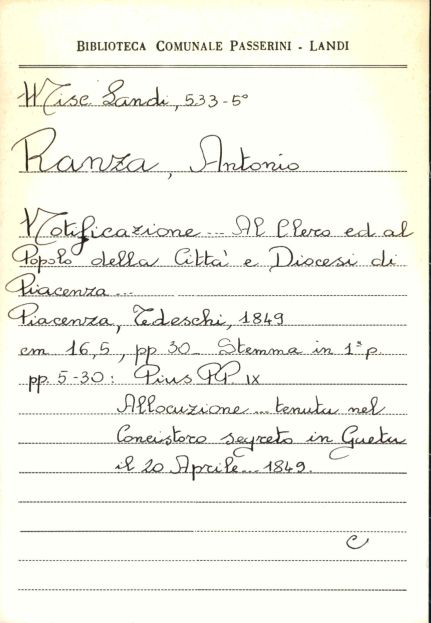 BIBLIOTECA COMUNALE PASSERINI - LANDI
Misc. Landi, 533-5°
Ranza, Antonio
Notificazione ... Al Clero ed al
Popolo della Città e Diocesi di
Piacenza ...
Piacenza, Tedeschi, 1849
cm 16,5, pp 30 Stemma in 1ª p.
pp. 5-30: Pius PP. IX
Allocuzione ... tenuta nel
Concistoro segreto in Gaeta
il 20 Aprile ... 1849.
C